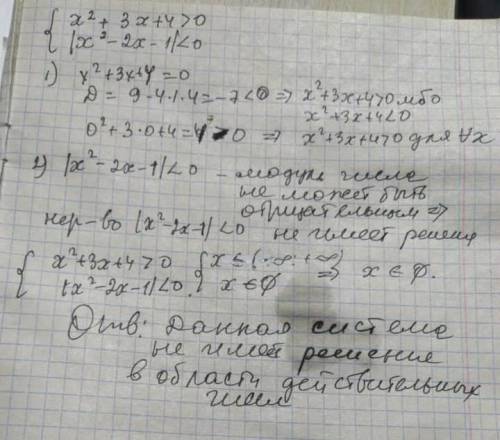 { x² + 3x + 4 > 0
|x² - 2x - 1| < 0
1) x² + 3x + 4 = 0
D = 9 - 4·1·4 = -7 < 0 => x² + 3x + 4 > 0 либо
x² + 3x + 4 < 0
0² + 3·0 + 4 = 4 > 0 => x² + 3x + 4 > 0 для ∀x
2) |x² - 2x - 1| < 0 - модуль числа
не может быть
отрицательным =>
нер-во |x² - 2x - 1| < 0 не имеет решения
{ x² + 3x + 4 > 0 { x ≤ (-∞; +∞) => x ∈ ∅.
|x² - 2x - 1| < 0. x ∈ ∅
Отв: Данная система
не имеет решение
в области действительных
чисел